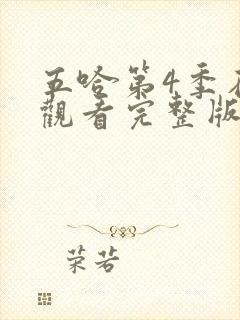 五哈第4季
觀看完整版
荣若